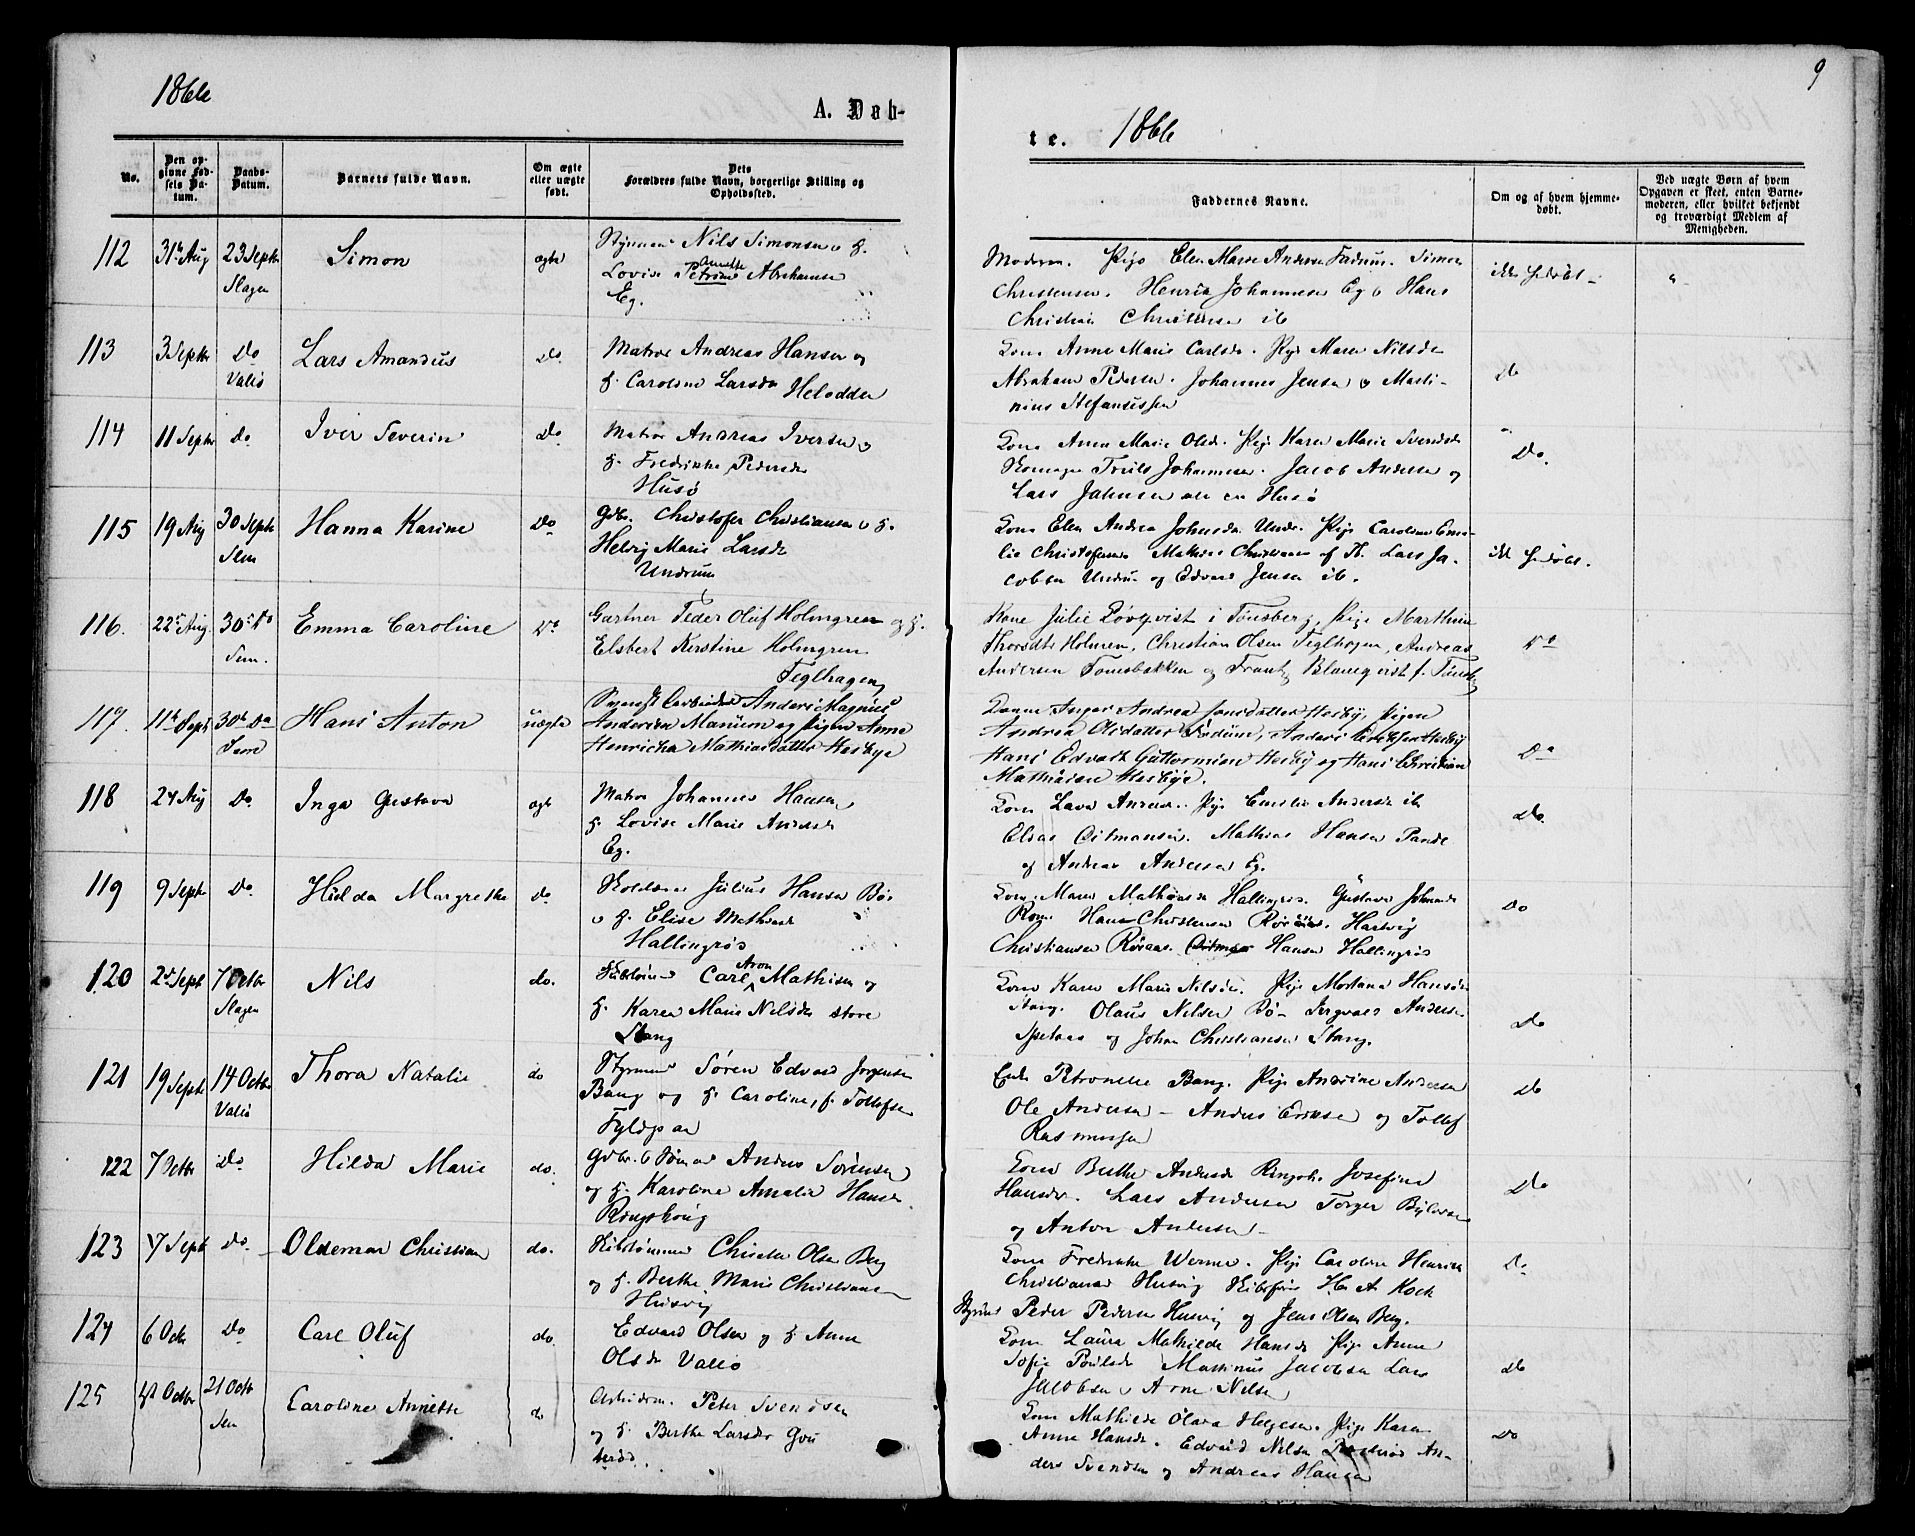 1866
A. Døb-
te. 1866
9
No.
Den op-
givne Fød-
sels Da-
tum.
Daabs-
Datum.
Barnets fulde Navn.
Om ægte
eller uægte
født.
Dets
Forældres fulde Navn, borgerlige Stilling og
Opholdssted.
Faddernes Navne.
Om og af hvem hjemme-
døbt.
Ved uægte Børn af hvem
Opgaven er skeet, enten Barne-
moderen, eller hvilket bekjendt
og troværdigt Medlem af
Menigheden.
112 31te Aug 23 Septr Simon ægte Styrmand Nils Simonsen o h.
Slagen Lovise Petrine Annette Abrahamsen
Eg.
Moderen. Pige Elen Marie Andersen Simon
Christensen. Henrik Johannesen Eg o Hans
Christian Christensen ib
ikke hjdøbt
113 3 Septr Do Lars Amandus Do. Matros Andreas Hansen og
Valø h. Caroline Larsdr
Helodden
Kone Anne Marie Carlsdr. Pige Maren Nilsdr
Abraham Pedersen. Johannes Jensen o Marti-
nius Stefanussen
Do
114 11 Septr Do Iver Severin Do Matros Andreas Iversen o
h. Fredrikke Pedersdr
Husø
Kone Anne Marie Olsdr. Pige Karen Marie Svendsdr
Skomager Truls Johannesen. Jacob Andersen og
Lars Jahnsen alle paa Husø
Do.
115 19 Aug 30 Septr Hanna Karine Do Gdbr. Christofer Christiansen o h.
Sem Helvig Marie Larsdr
Undrum
Kone Elen Andrea Johnsdr Undr. Pige Caroline Emi-
lie Christofersdr Mathias Christiansen af T. Lars Ja-
cobsen Undrum og Edvard Jensen ib.
ikke hjdøbt.
116. 22de Aug. 30te Do Emma Caroline Do Gartner Peder Oluf Holmgreen og h.
Sem. Elsbert Kerstine Holmgren
Teglhagen
Kone Julie Løvqvist i Tønsberg, Pige Marthine
Thorsdtr Holmen, Christian Olsen Teglhagen, Andreas
Andersen Tomsbakken og Frantz Blomqvist f. Tønsbg
Do
117. 11te Septr 30te Do Hans Anton uægte Anders Magnus
Sem Andersen Manum og Pigen Anne
Henricha Mathiasdatter Hesbye
Inger Andrea Jonsdatter Hesby, Pigen
Andrea Olsdatter, Anders Eriksen Hesby
Hans Edvart Guttormsen Hesby og Hans Christian
Mathiasen Hesbye.
Do
118 24 Aug Do. Inga Gustava ægte Matros Johannes Hansen
h. Lovise Marie Andersdr
Eg.
Kone Lava Andersdr. Pige Emilie Andersdr ib
Elias Ditmansen. Mathias Hansen Pande
og Andreas Andersen Eg.
Do.
119 9 Septr Do. Hilda Margrethe do. Julius Hansen Bø.
o h. Elise Mathiasdr
Hallingrøs
Kone Maren Mathiasdr Hallingrøs. Gustava Johannesdr
Rom. Hans Christensen Røraas. Hartvig
Christiansen Røraas. Ditman Hansen Hallingrøs
Do
120 2de Septr 7 Octbr Nils do. Carl Aron Mathisen og
Slagen h. Karen Marie Nilsdr store
Stang
Kone Karen Marie Nilsdr. Pige Hansdr
Stang. Olaus Nilsen Bø Ingvald Andersen
og Johan Christiansen Stang.
Do
121 19 Septr 14 Octbr Thora Natalie do Styrmand Søren Edvard Jørgensen
Valø Bang og h. Caroline, f. Tollefsen
Fyldpaa
Enke Petronelle Bang. Pige Andrine Andersen
Ole Andersen Anders Eriksen og Tollef
Rasmussen
Do
122 7 Octbr Do Hilda Marie do. Gdbr. o Sømand Anders Sørensen
og h. Karoline Amalie Hansen
Ringshoug
Kone Berthe Andersdr Ringsh. Josefine
Hansdr. Lars Andersen Torger
og Anton Andersen
Do
123 7 Septr Do. Oldemar Christian do. Skibstømmermd Christen Olsen Berg
og h. Berthe Marie Christiansen
Husvig
Kone Fredrikke Werner. Pige Caroline Henrikke
Christiansdr Husvig Skibsfører H. A. Koch
Styrmd Peder Pedersen Husvig og Jens Olsen Berg.
Do
124 6 Octr Do Carl Oluf do. Edvard Olsen og h. Anne
Olsdr Vallø
Kone Laura Mathilde Hansdr Pige Anne
Sofie Poulsdr Martinus Jacobsen Lars
Jacobsen o Arne Nilsen
do
125 1 Octbr 21 Octr Caroline Annette do Arbeidsm. Peter Svendsen
Sem og h. Berthe Larsdr
Kone Mathilde Olava Helgesen. Pige Karen
Anne Hansdr. Edvard Nilsen An-
ders Svendsen og Andreas Hansen
Do